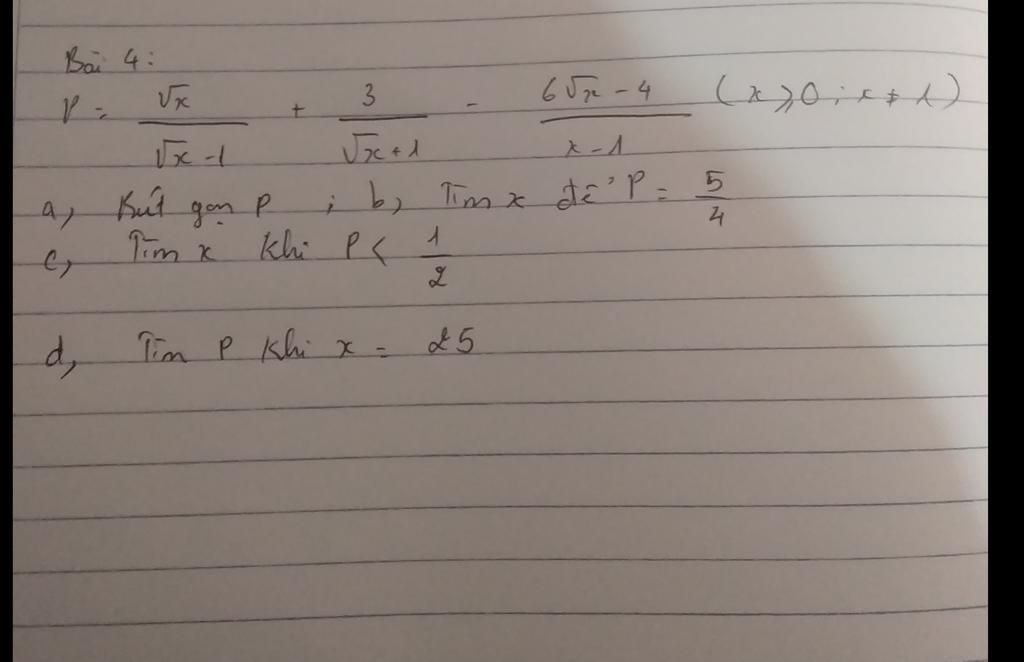 Bài 4:
P = \frac{\sqrt{x}}{\sqrt{x}-1} + \frac{3}{\sqrt{x}+1} - \frac{6\sqrt{x}-4}{x-1} (x ⩾ 0 ; x ≠ 1)
a, Rút gọn P ; b, Tìm x để P = \frac{5}{4}
c, Tìm x khi P < \frac{1}{2}
d, Tìm P khi x = 25